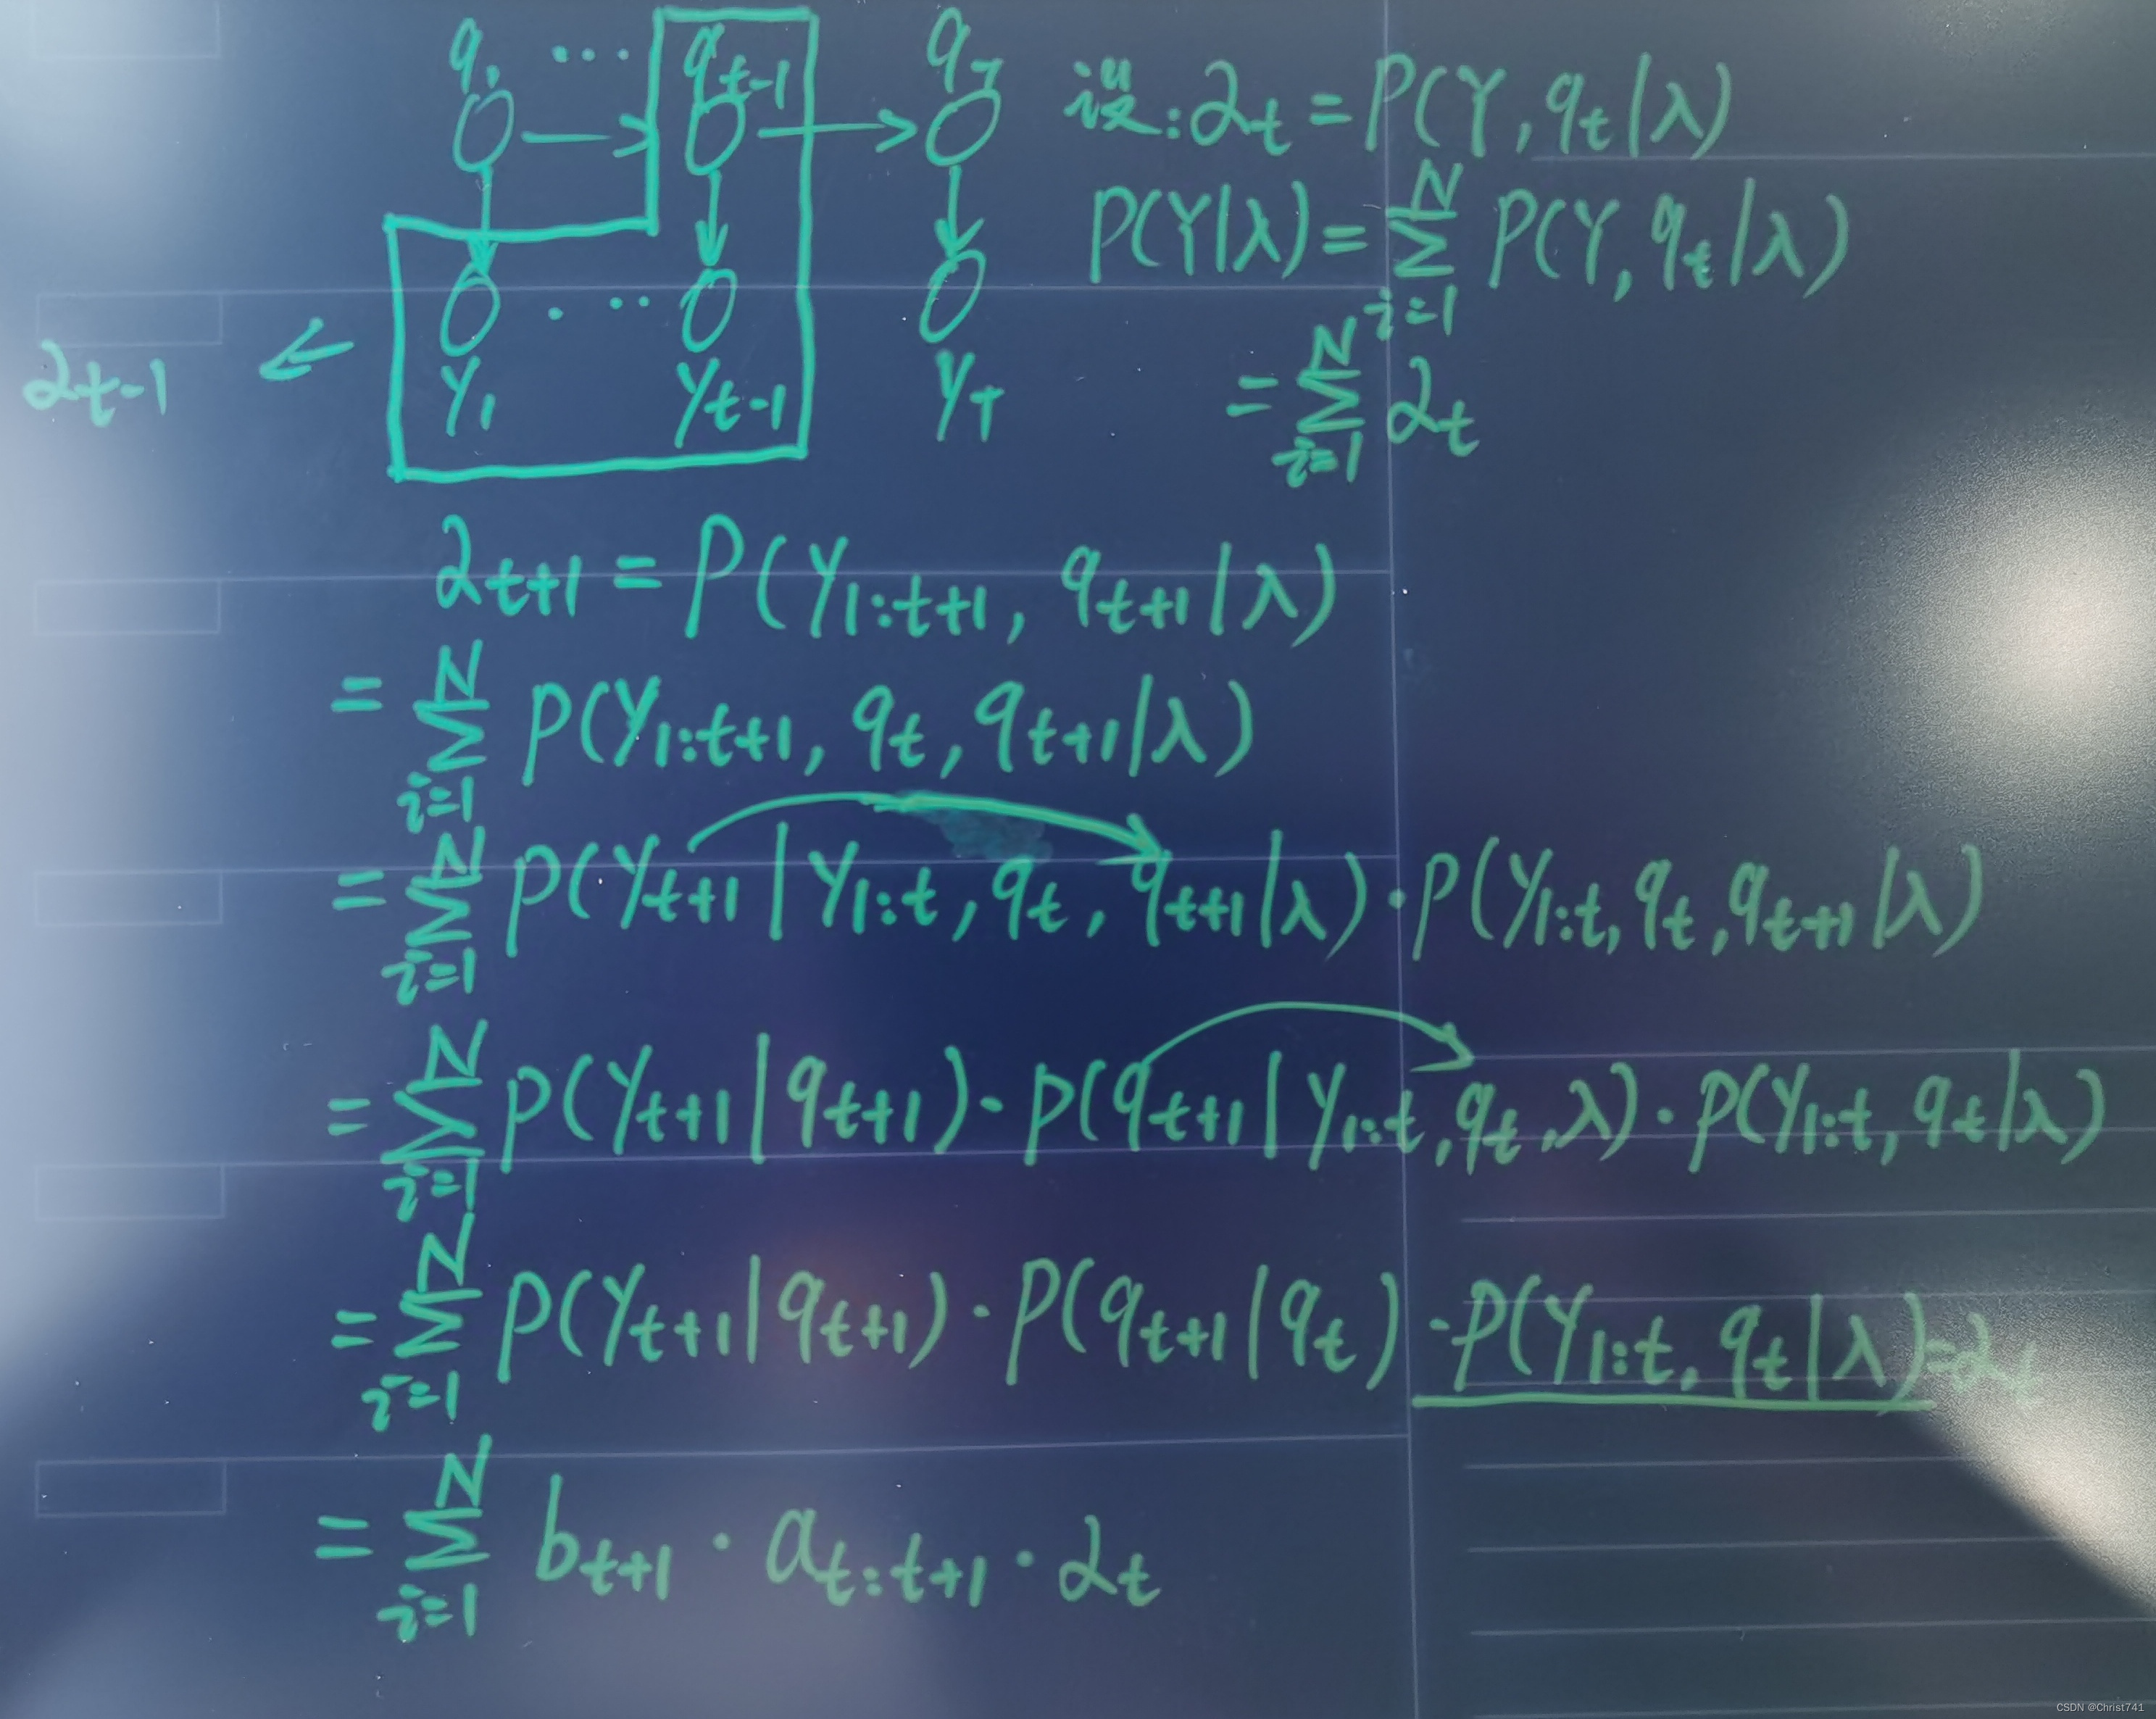 q₁ ⋯ q_{t-1} q_T
y₁ ⋯ y_{t-1} y_T
α_{t-1} ←
设: α_t = P(Y, q_t | λ)
P(Y|λ) = Σ_{i=1}^{N} P(Y, q_t | λ)
= Σ_{i=1}^{N} α_t
α_{t+1} = P(y_{1:t+1}, q_{t+1} | λ)
= Σ_{i=1}^{N} P(y_{1:t+1}, q_t, q_{t+1} | λ)
= Σ_{i=1}^{N} P(y_{t+1} | y_{1:t}, q_t, q_{t+1} | λ) · P(y_{1:t}, q_t, q_{t+1} | λ)
= Σ_{i=1}^{N} P(y_{t+1} | q_{t+1}) · P(q_{t+1} | y_{1:t}, q_t, λ) · P(y_{1:t}, q_t | λ)
= Σ_{i=1}^{N} P(y_{t+1} | q_{t+1}) · P(q_{t+1} | q_t) · P(y_{1:t}, q_t | λ) = α_t
= Σ_{i=1}^{N} b_{t+1} · a_{t:t+1} · α_t
CSDN @Christ741